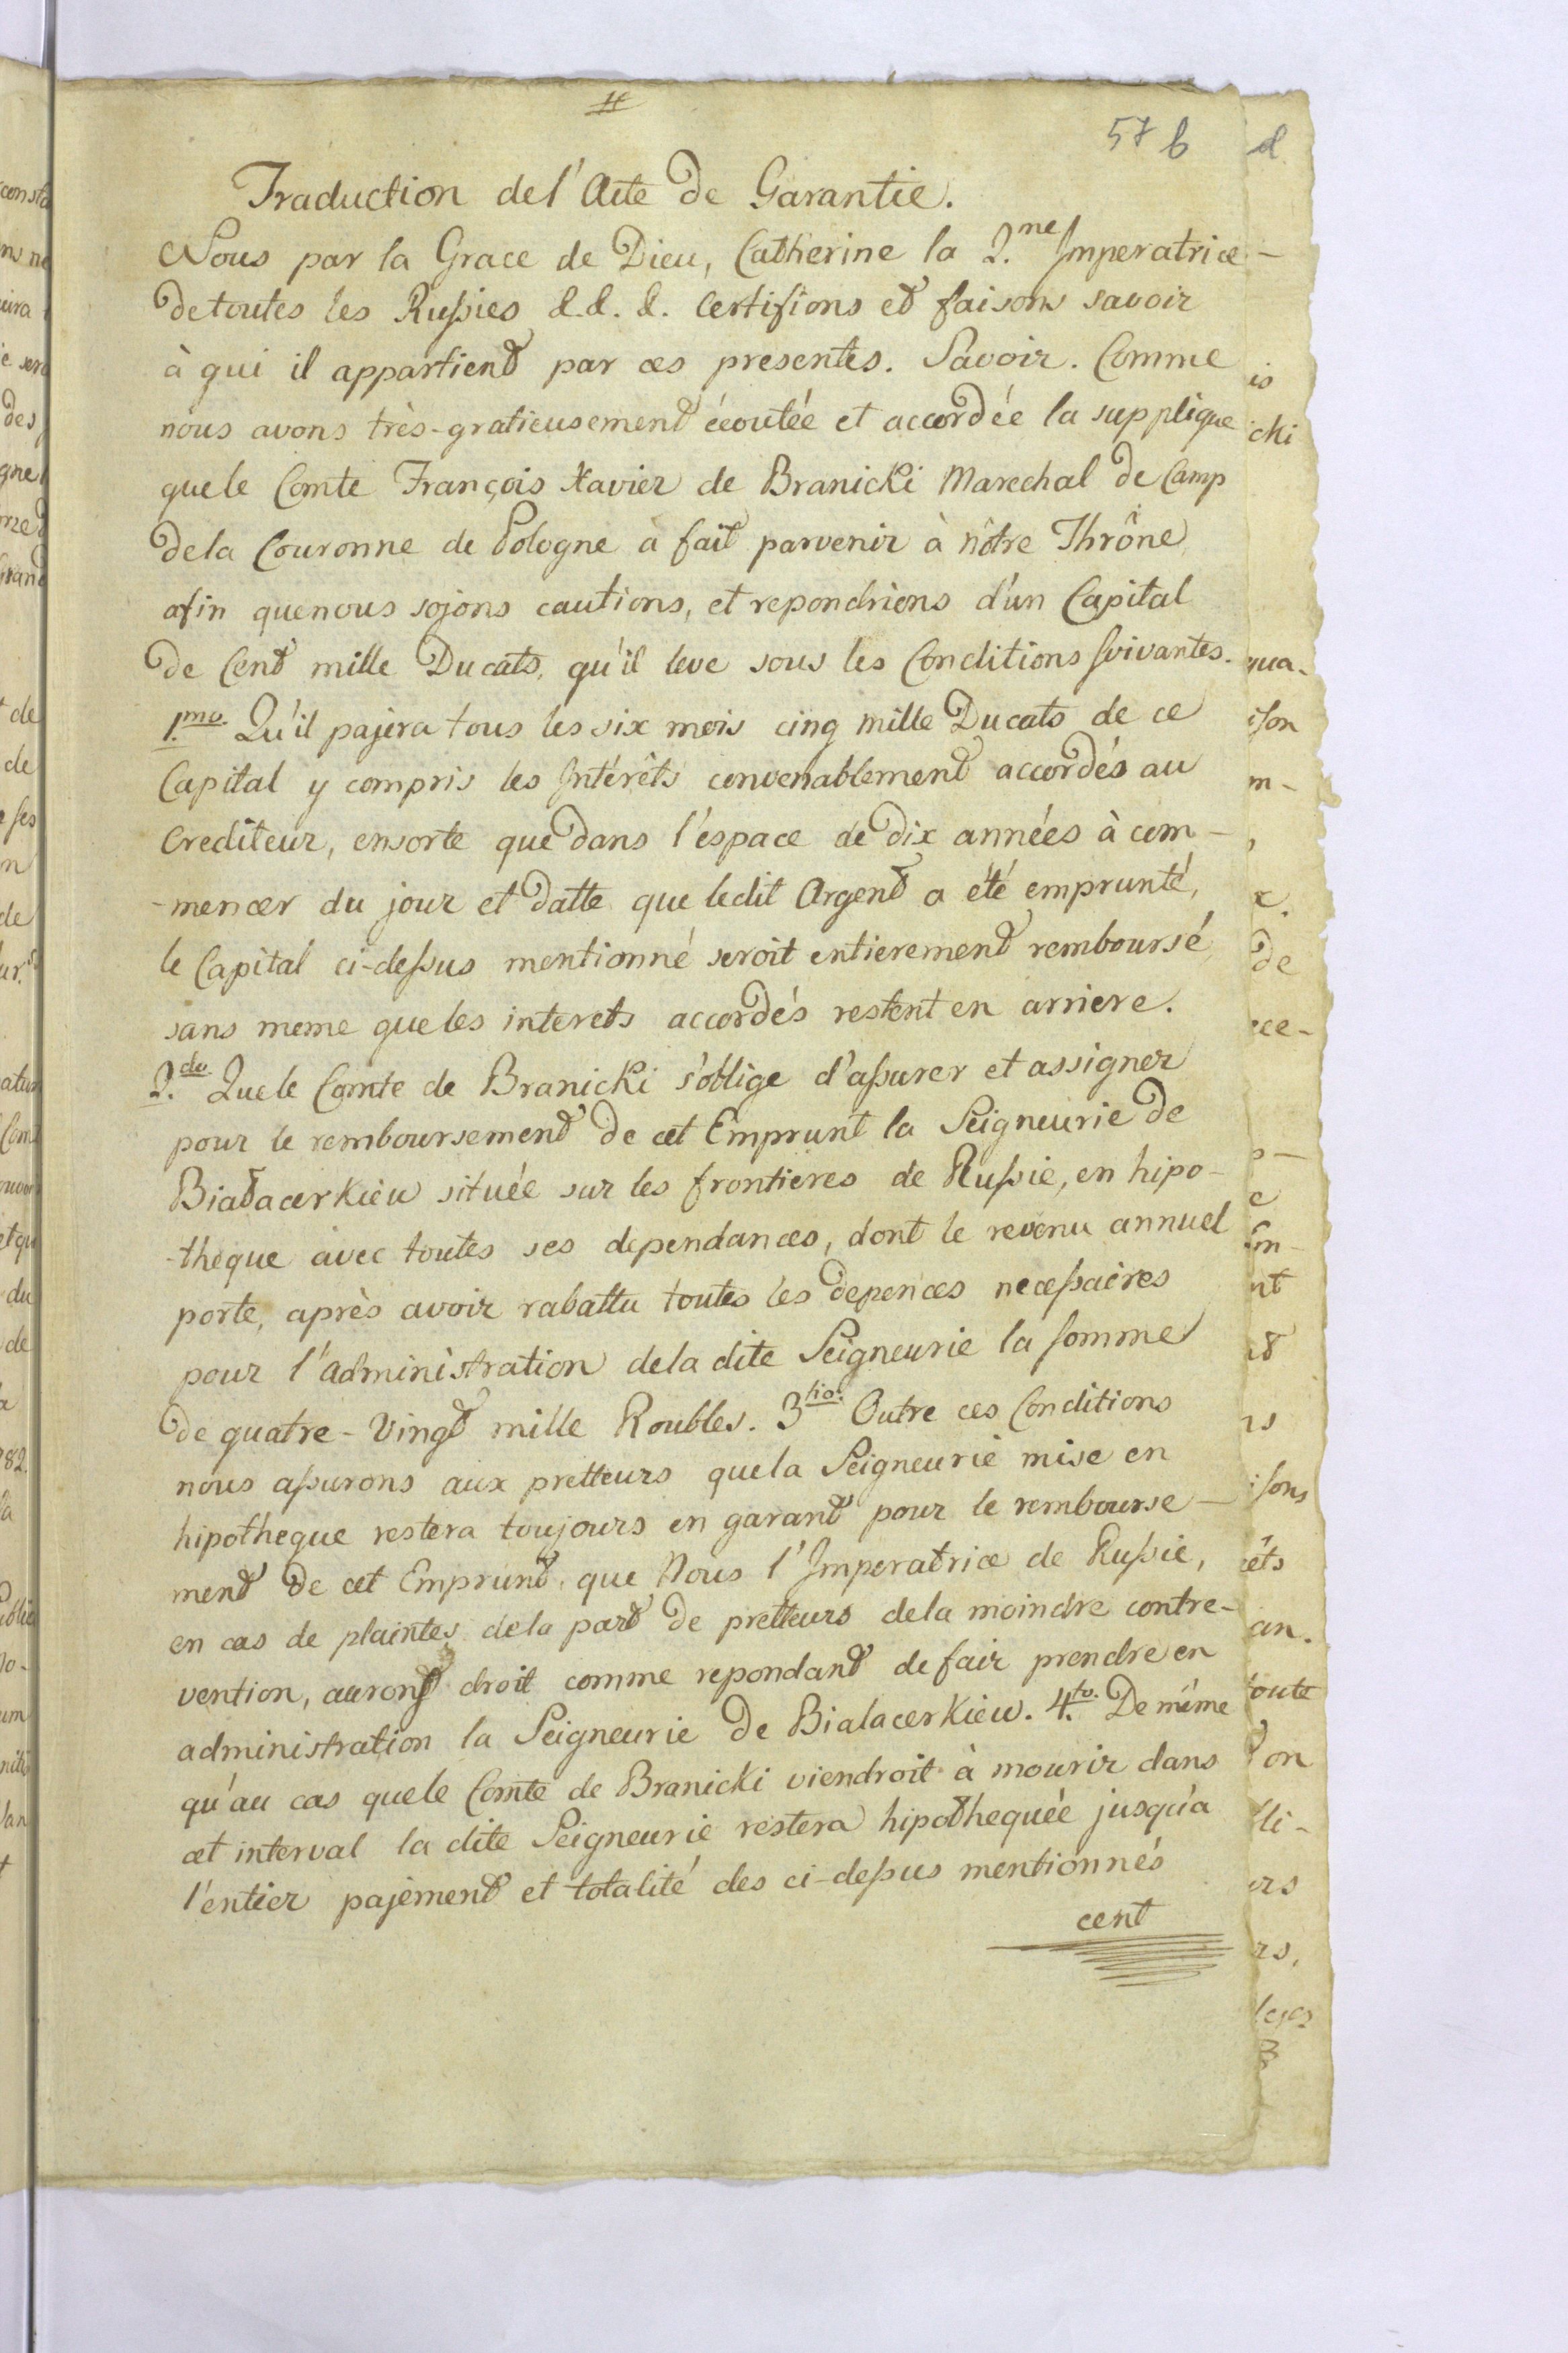 #
57 b
Traduction de l'Acte de Garantie.
Nous par la Grace de Dieu, Catherine la 2.me Imperatrice -
de toutes les Russies &.&.&. Certifions et faisons savoir
à qui il appartient par ces presentes. Savoir. Comme
nous avons très-gratieusement écoutée et accordée la supplique
que le Comte François Xavier de Branicki Marechal de Camp
de la Couronne de Pologne à fait parvenir à nôtre Thrône
afin que nous sojons cautions, et repondrions d'un Capital
de Cent mille Ducats, qu'il leve sous les Conditions suivantes.
1.mo. Qu'il pajera tous les six mois cinq mille Ducats de ce
Capital y compris les Intérêts convenablement accordés au
Crediteur, ensorte que dans l'éspace de dix années à com-
-mencer du jour et datte que ledit Argent a été emprunté,
le Capital ci-dessus mentionné seroit entierement remboursé,
sans meme que les interets accordés restent en arriere.
2.do. Que le Comte de Branicki s'oblige d'assurer et assigner
pour le remboursement de cet Emprunt la Seigneurie de
Bialacerkiew située sur les frontieres de Russie, en hipo-
-theque avec toutes ses dependances, dont le revenu annuel
porte, après avoir rabattu toutes les depences necessaires
pour l'administration de la dite Seigneurie la somme
de quatre-Vingt mille Roubles. 3.tio. Outre ces Conditions
nous assurons aux pretteurs que la Seigneurie mise en
hipotheque restera toujours en garant pour le rembourse-
ment de cet Emprunt, que Nous l'Imperatrice de Russie,
en cas de plaintes de la part de pretteurs de la moindre contre-
vention, aurons droit comme repondant de fair prendre en
administration la Seigneurie de Bialacerkiew. 4.to. De même
qu'au cas que le Comte de Branicki viendroit à mourir dans
cet interval la dite Seigneurie restera hipothequée jusqu'a
l'entier pajement et totalité des ci-dessus mentionnés
cent